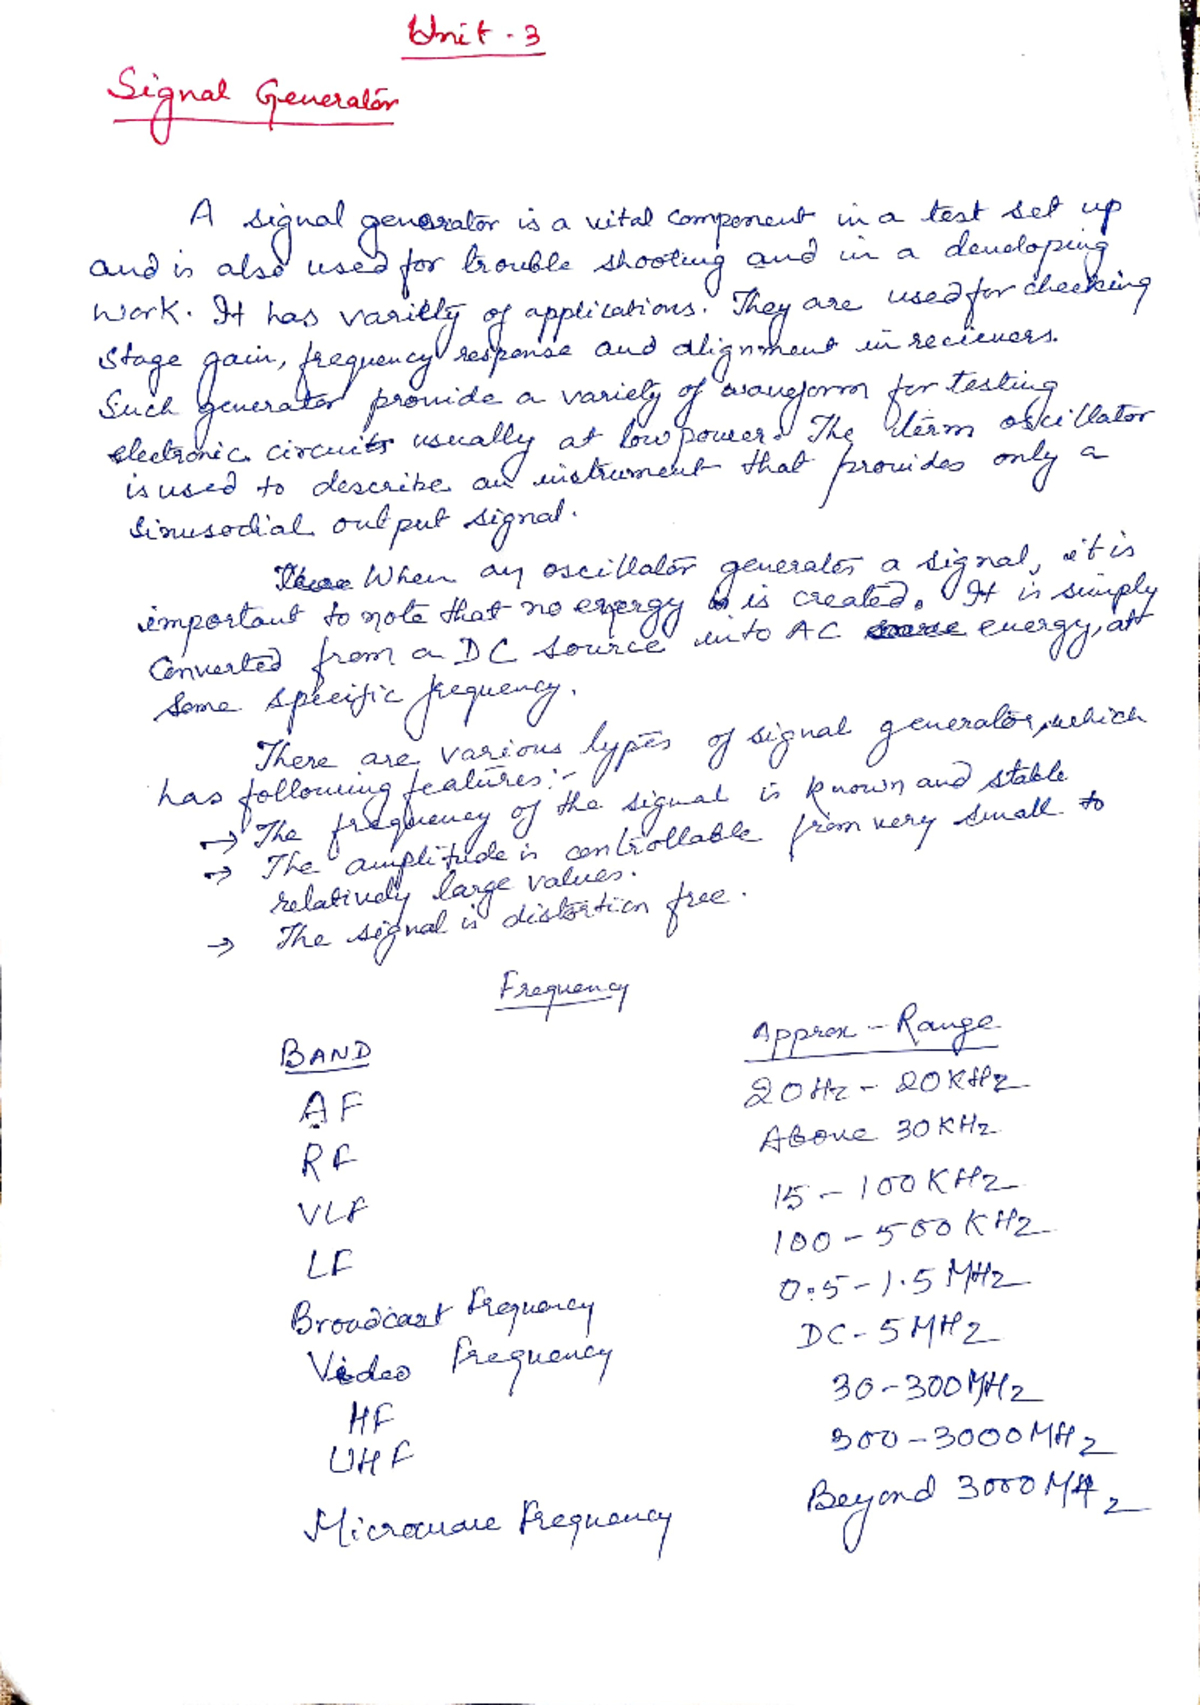 Unit - 3
Signal Generator
A signal generator is a vital component in a test set up
and is also used for trouble shooting and in a developing
work. It has variety of applications. They are used for checking
stage gain, frequency response and alignment in recievers.
Such generator provide a variety of waveform for testing
electronic circuits usually at low power. The term oscillator
is used to describe an instrument that provides only a
sinusodial output signal.
When an oscillator generates a signal, it is
important to note that no energy is created. It is simply
converted from a DC source into AC energy, at
some specific frequency.
There are various types of signal generator, which
has following features:-
→ The frequency of the signal is known and stable
→ The amplitude is controllable from very small to
relatively large values.
→ The signal is distortion free.
Frequency
BAND Approx - Range
AF 20Hz - 20KHz
RF Above 30KHz
VLF 15 - 100KHz
LF 100 - 500KHz
Broadcast Frequency 0.5 - 1.5MHz
Video Frequency DC - 5MHz
HF 30 - 300MHz
UHF 300 - 3000MHz
Microwave Frequency Beyond 3000MHz